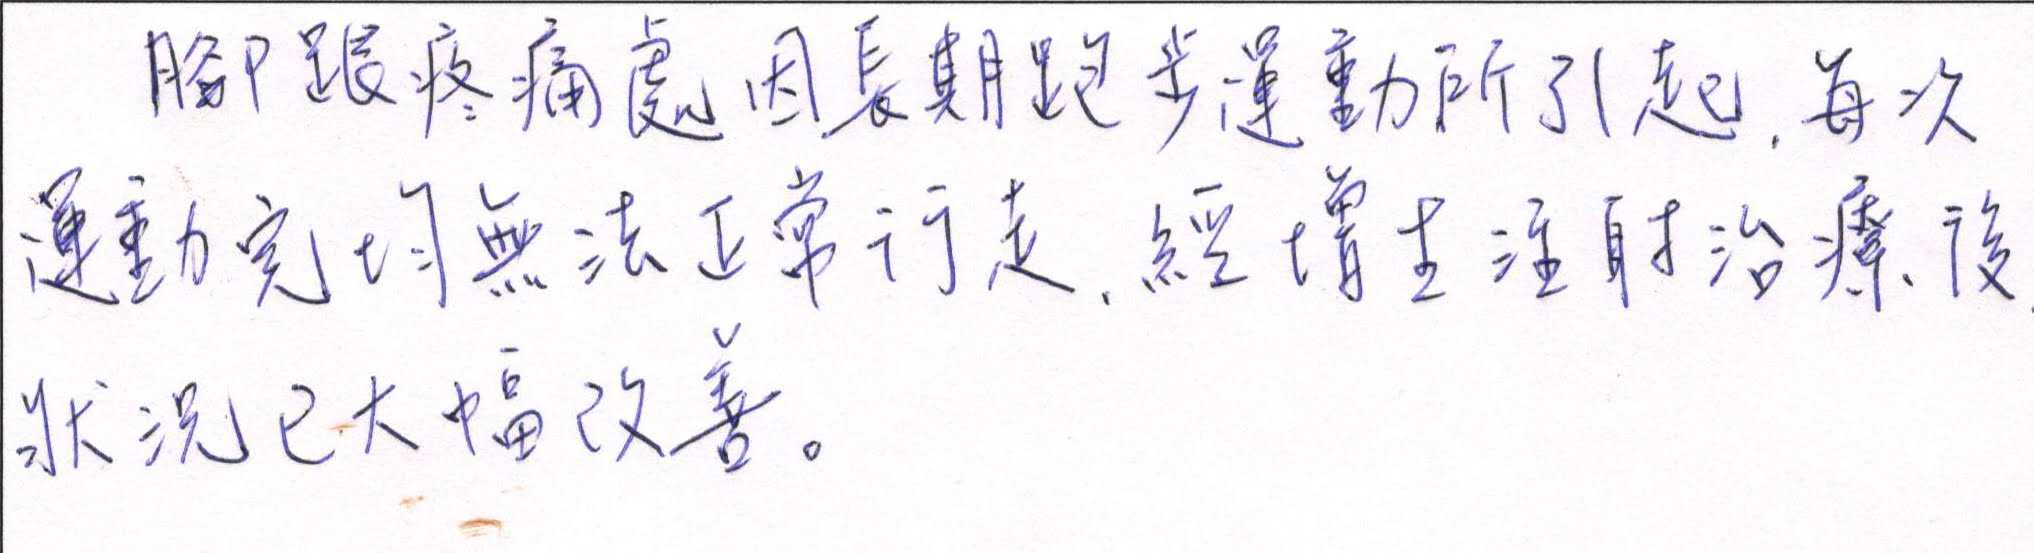 腳跟疼痛處因長期跑步運動所引起,每次
運動完均無法正常行走,經增生注射治療、後,
狀況已大幅改善。